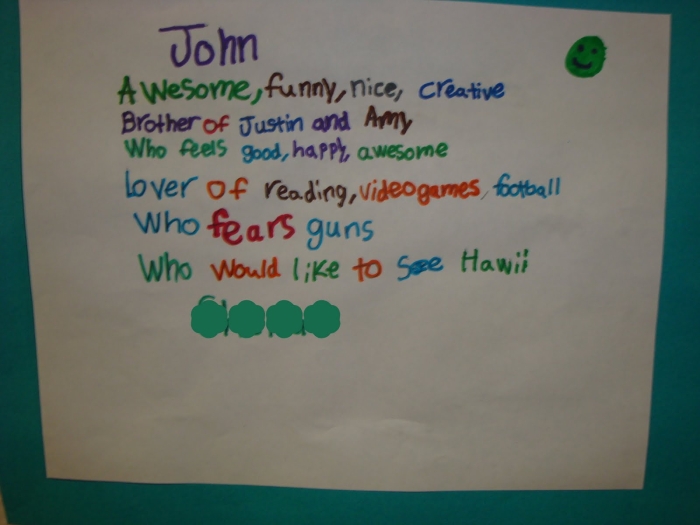 John
Awesome, funny, nice, creative
Brother of Justin and Amy
Who feels good, happy, awesome
Lover of reading, videogames, football
Who fears guns
Who would like to see Hawii